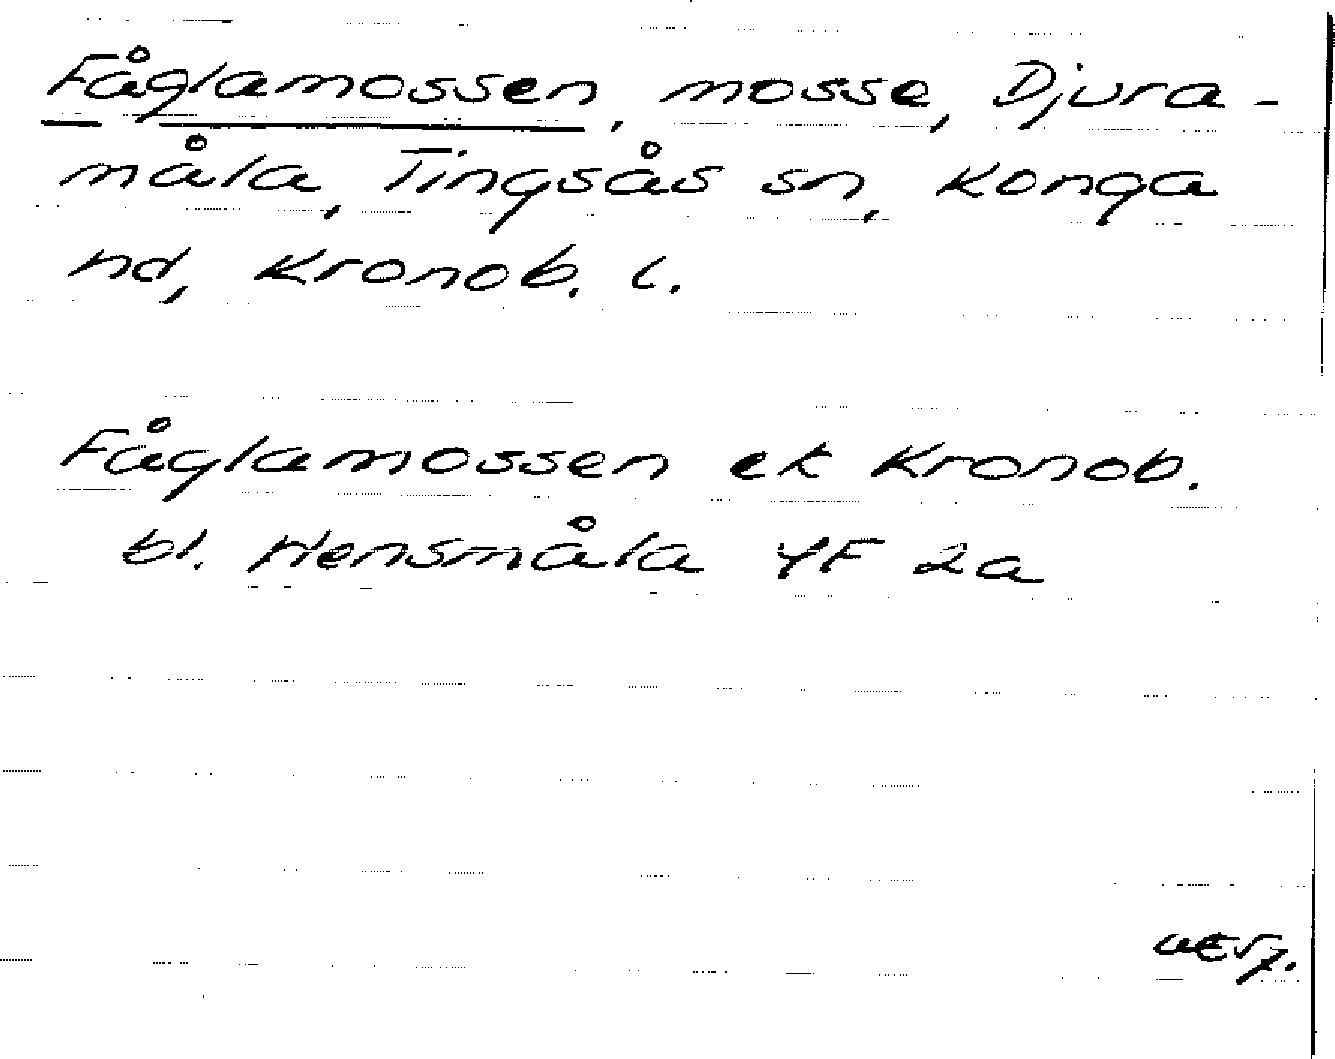 Fåglamossen, mosse, Djura-
måla, Tingsås sn, Konga
hd, Kronob. l.
Fåglamossen ek Kronob.
bl. Hensmåla 4F 2a